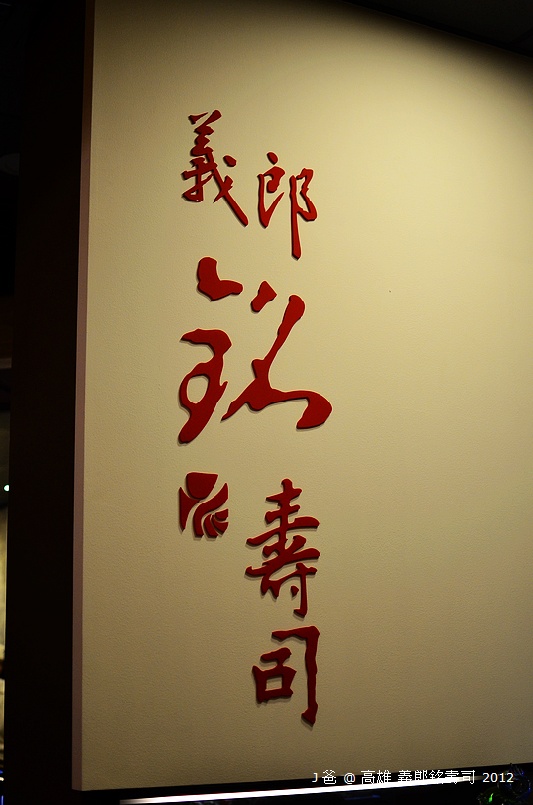 義郎
銘
壽司
J 爸 @ 高雄 義郎銘壽司 2012